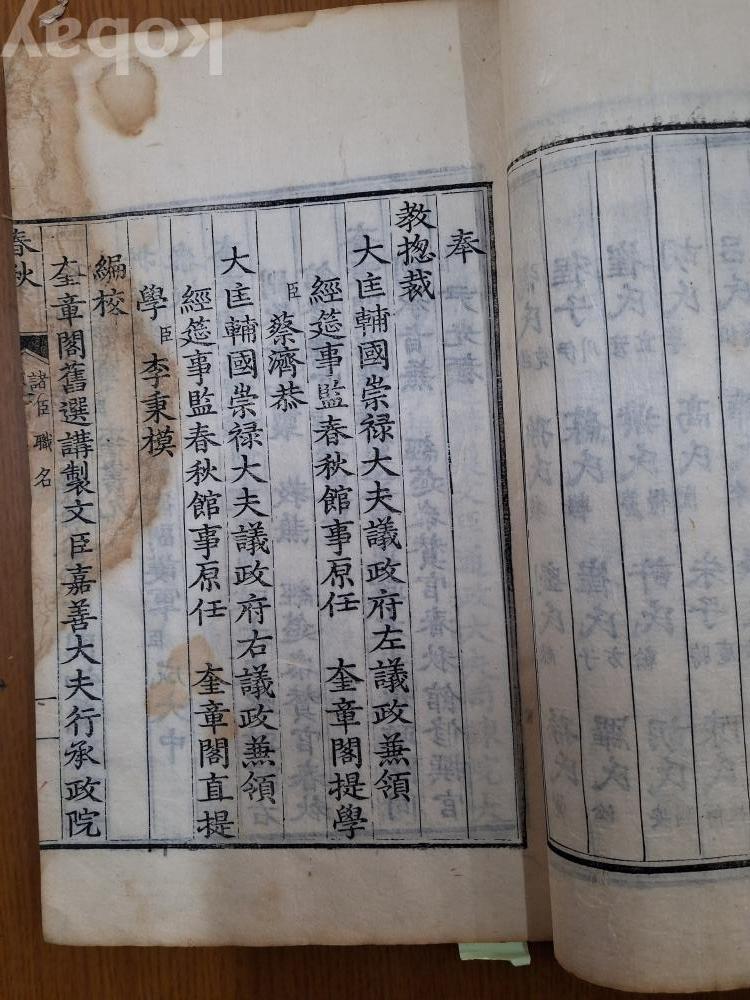 奉
教摠裁
大匡輔國崇禄大夫議政府左議政兼領
經筵事監春秋館事原任 奎章閣提學
臣蔡濟恭
大匡輔國崇禄大夫議政府右議政兼領
經筵事監春秋館事原任 奎章閣直提
學臣李秉模
編校
奎章閣舊選講製文臣嘉善大夫行承政院
春秋 諸臣職名 一
kobay